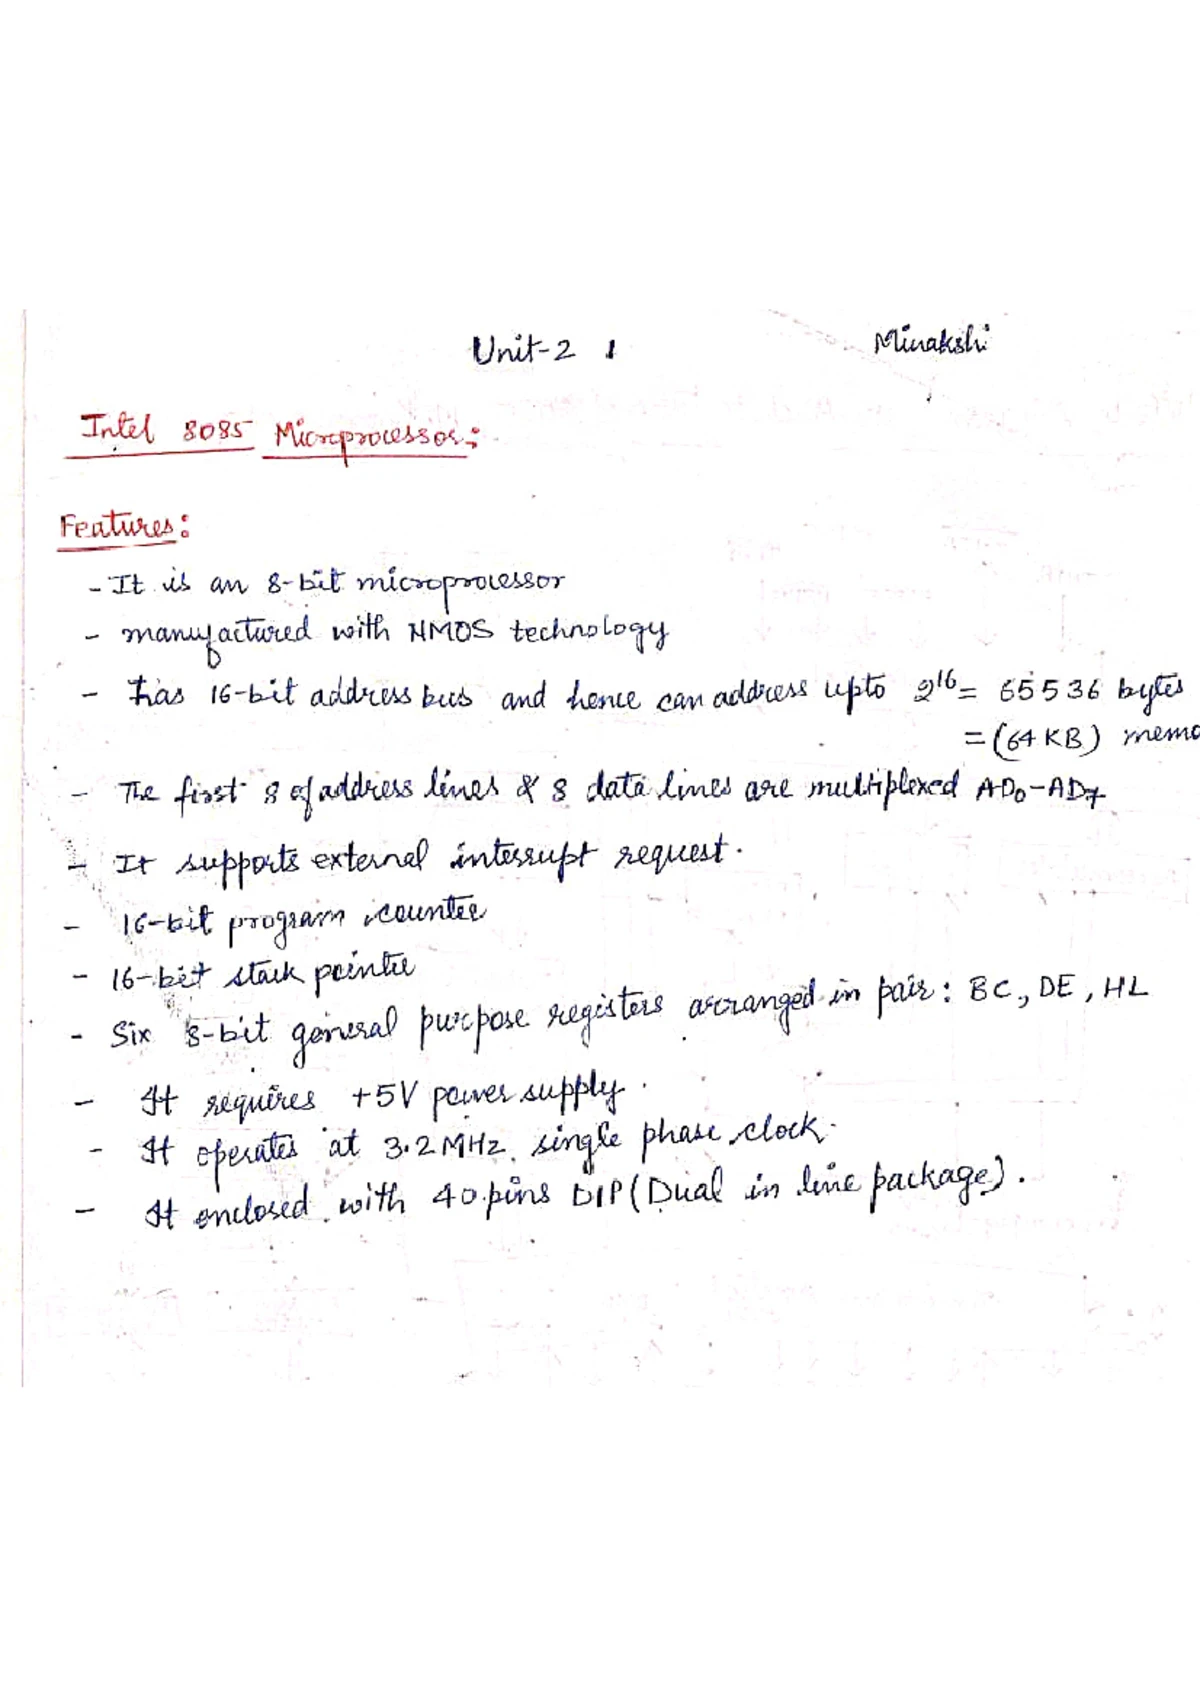 Unit-2 1
Minakshi
Intel 8085 Microprocessor:
Features:
- It is an 8-bit microprocessor
- manufactured with NMOS technology
- has 16-bit address bus and hence can address upto 2^16 = 65536 bytes
= (64 KB) memo
- The first 8 of address lines & 8 data lines are multiplexed AD0-AD7
- It supports external interrupt request.
- 16-bit program counter
- 16-bit stack pointer
- Six 8-bit general purpose registers arranged in pair: BC, DE, HL
- It requires +5V power supply.
- It operates at 3.2 MHz single phase clock.
- It enclosed with 40 pins DIP (Dual in line package).